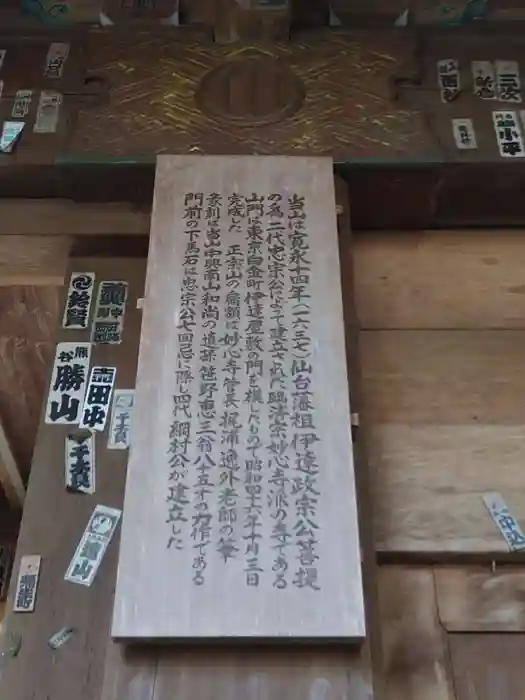 当山は寛永十四年(一六三七)仙台藩祖伊達政宗公菩提
の為二代忠宗公によって建立された臨済宗妙心寺派の寺である
山門は東京白金町伊達屋敷の門を模したもので昭和四十六年十月三日
完成した 正宗山の扁額は妙心寺管長梶浦逸外老師の筆
彖刻は当山中興南山和尚の遺孫笹野恵三翁八十五才の力作である
門前の下馬石は忠宗公七回忌に際し四代綱村公が建立した
勝山
田中
千社
小平
三次
中込